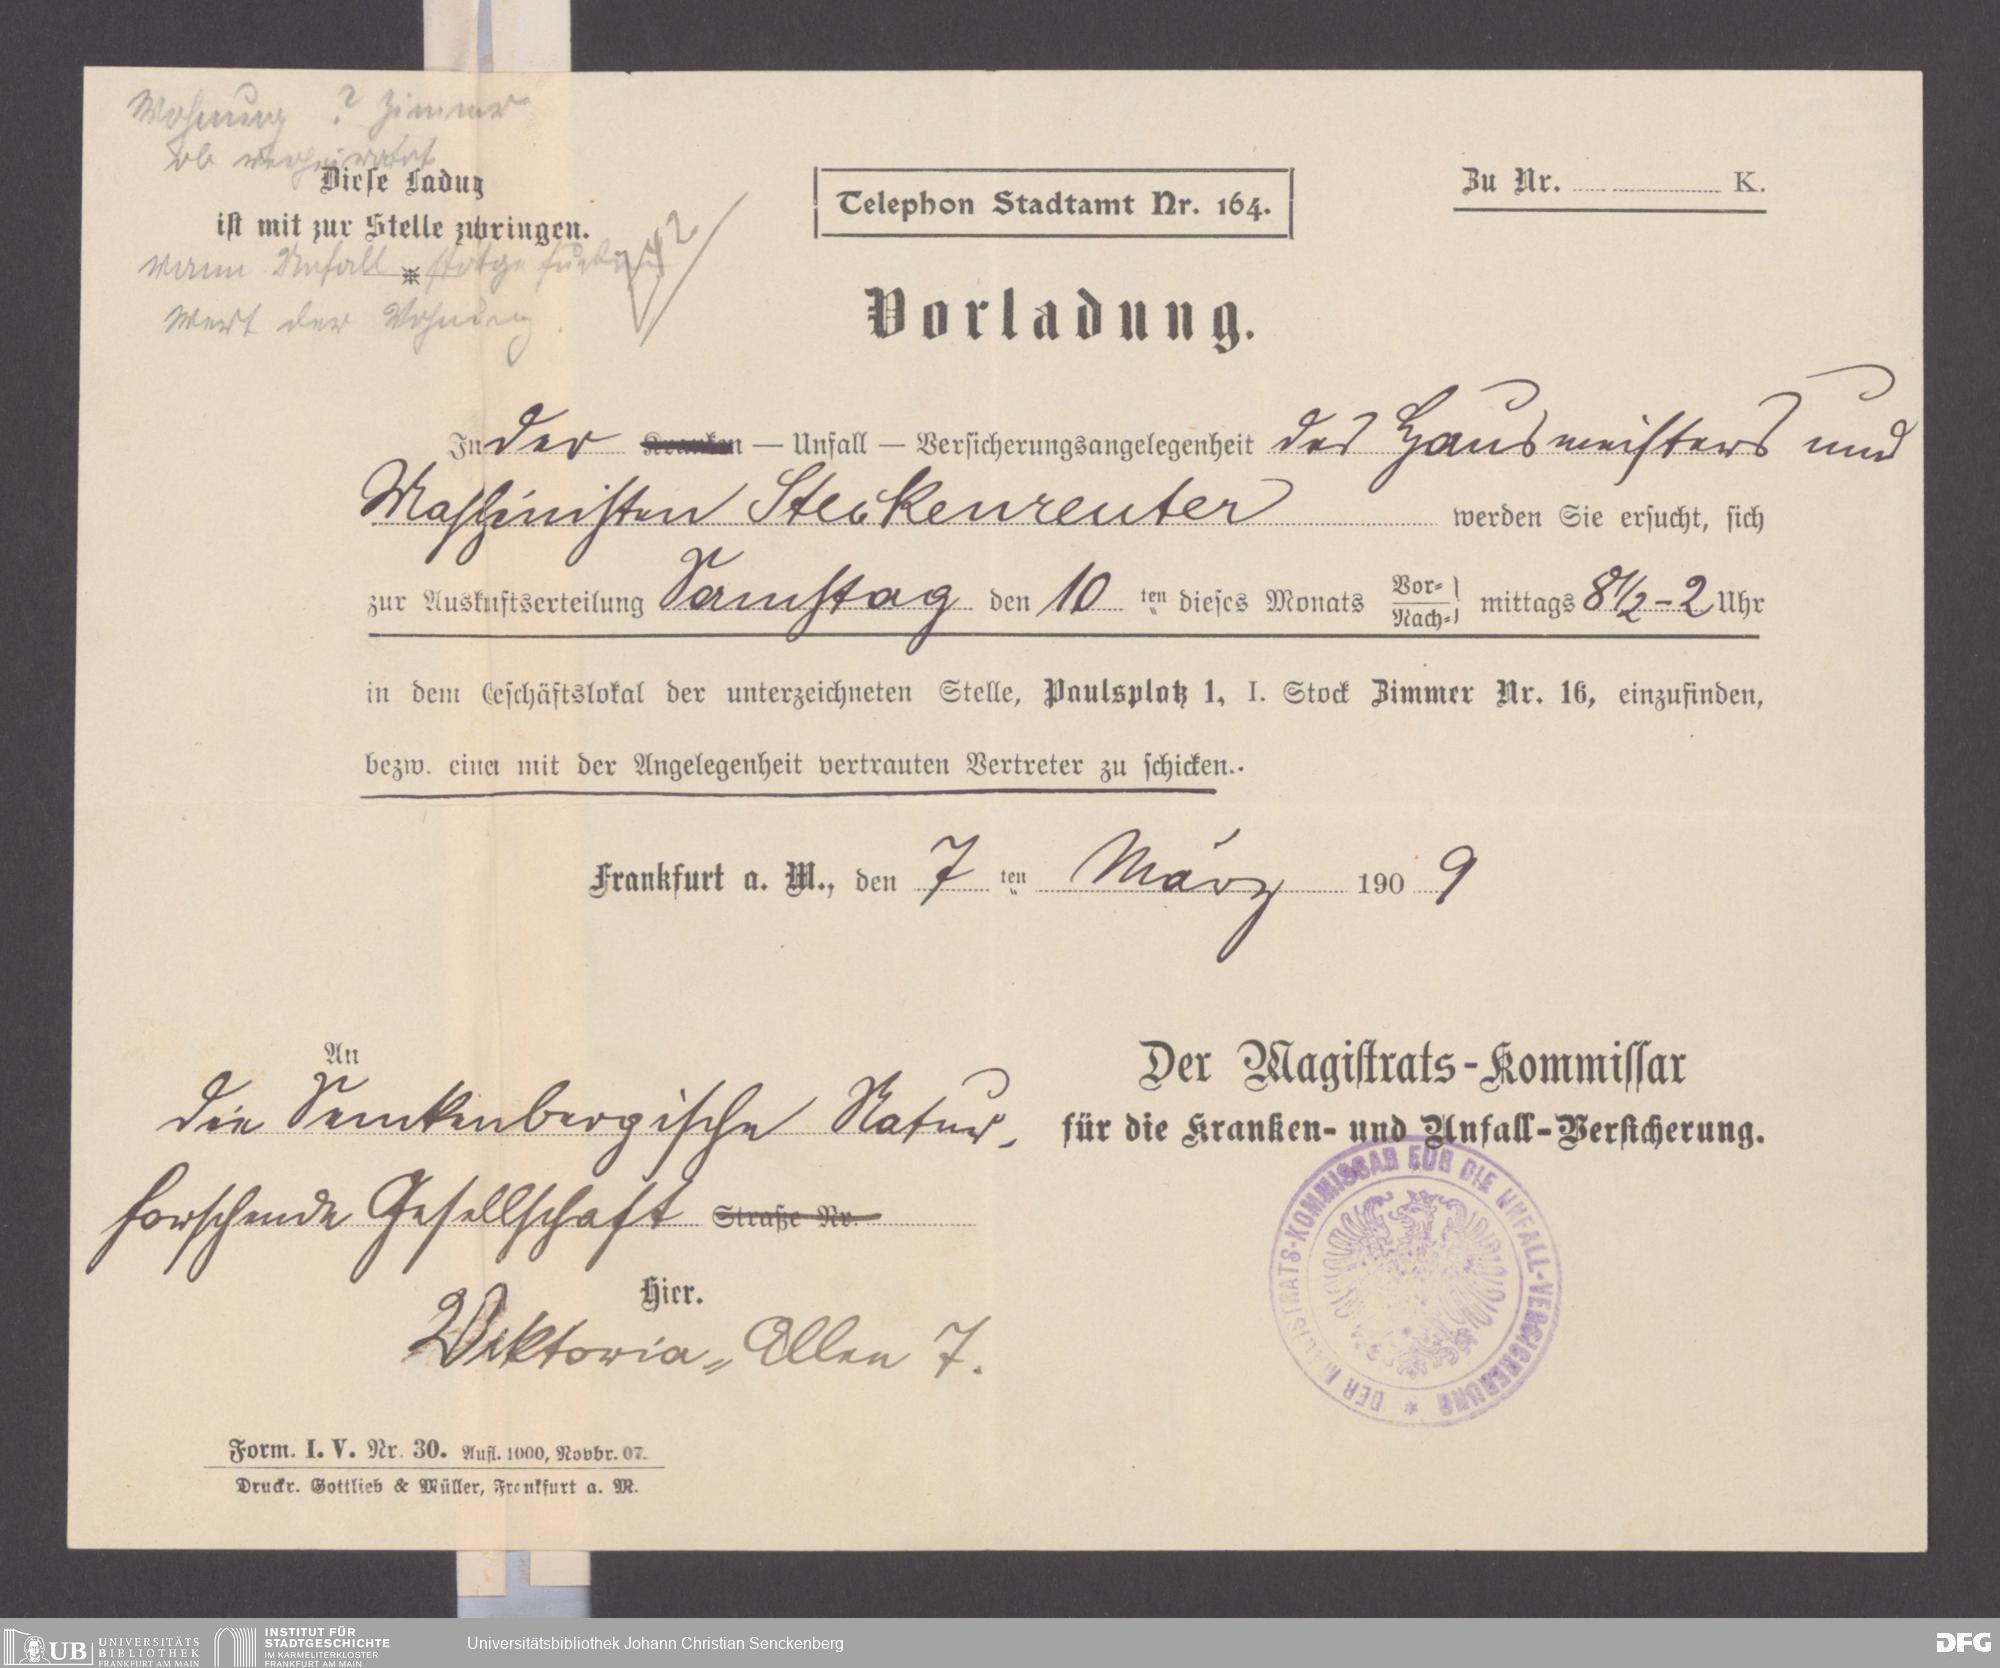 Wohnung ? Zimmer
ob verheiratet
Diese Ladug
ist mit zur Stelle zu bringen.
wann Unfall stattgefunden
Wert der Wohnung.
Telephon Stadtamt Nr. 164.
Zu Nr. K.
Vorladung.
In der Kranken — Unfall — Versicherungsangelegenheit des Hausmeisters und
Maschinisten Steckenreuter werden Sie ersucht, sich
zur Auskunftserteilung Samstag den 10 ten dieses Monats Vor- Nach- mittags 8 1/2 - 2 Uhr
in dem Geschäftslokal der unterzeichneten Stelle, Paulsplatz 1, I. Stock Zimmer Nr. 16, einzufinden,
bezw. einen mit der Angelegenheit vertrauten Vertreter zu schicken.
Frankfurt a. M., den 7 ten März 1909
An
die Senckenbergische Natur-
forschende Gesellschaft Straße Nr.
Hier.
Viktoria-Allee 7.
Der Magistrats-Kommissar
für die Kranken- und Unfall-Versicherung.
DER MAGISTRATS-KOMMISSAR FÜR DIE UNFALL-VERSICHERUNG *
Form. I. V. Nr. 30. Aufl. 1000, Novbr. 07.
Druckr. Gottlieb & Müller, Frankfurt a. M.
UB UNIVERSITÄTS
BIBLIOTHEK
FRANKFURT AM MAIN
INSTITUT FÜR
STADTGESCHICHTE
IM KARMELITERKLOSTER
FRANKFURT AM MAIN
Universitätsbibliothek Johann Christian Senckenberg
DFG